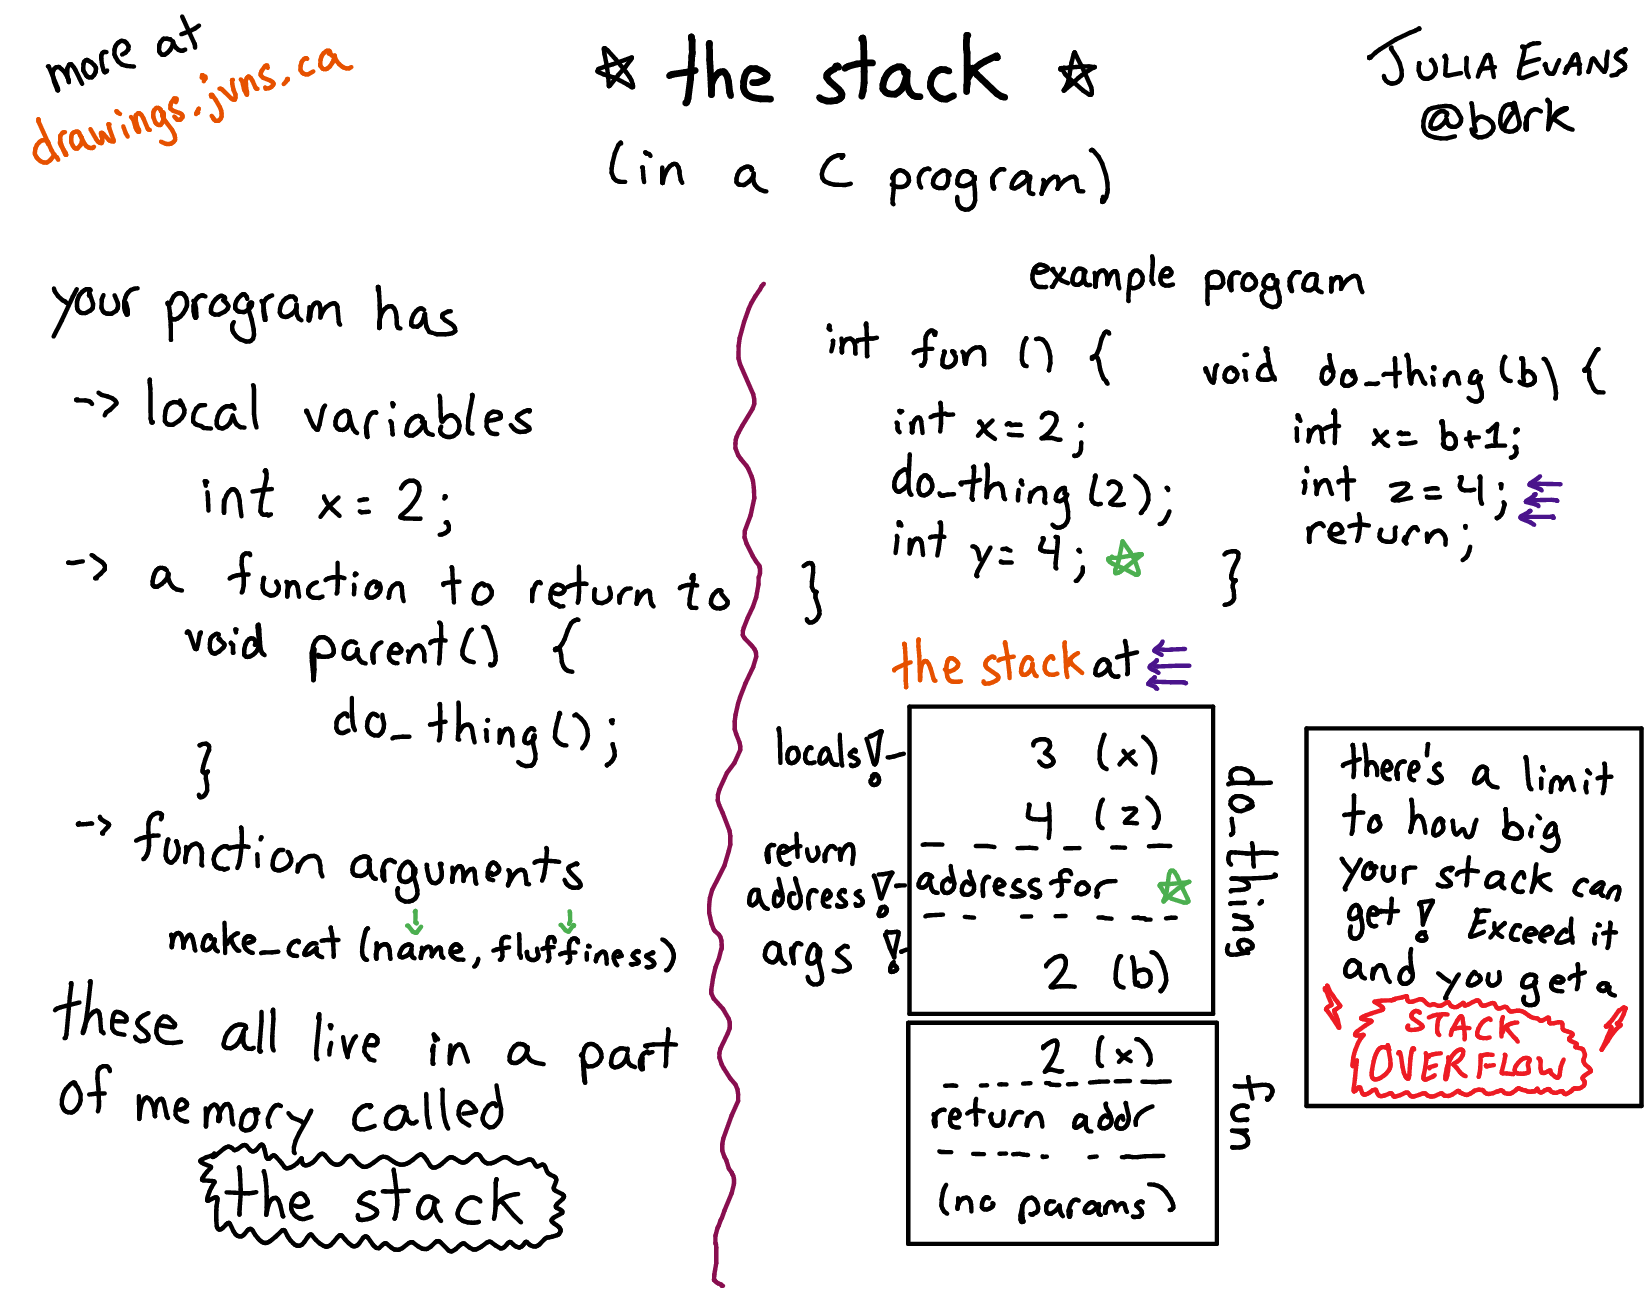 more at
drawings.jvns.ca
☆ the stack ☆
(in a C program)
JULIA EVANS
@b0rk
your program has
-> local variables
int x = 2;
-> a function to return to
void parent() {
do_thing();
}
-> function arguments
make_cat (name, fluffiness)
these all live in a part
of memory called
the stack
example program
int fun () {
int x = 2;
do_thing (2);
int y = 4; ☆
}
void do_thing (b) {
int x = b+1;
int z = 4;
return;
}
the stack at
locals!
3 (x)
4 (z)
return
address!
address for ☆
args!
2 (b)
do_thing
2 (x)
return addr
(no params)
fun
there's a limit
to how big
your stack can
get! Exceed it
and you get a
STACK
OVERFLOW